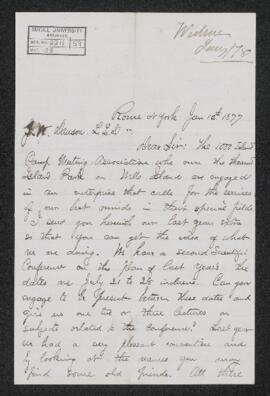 McGILL UNIVERSITY
ARCHIVES
ACC. NO. 2211 59
REF. 28
Jany /78
Rome N York Jan 12th 1877
J. W. Dawson. L.L.D.
Dear Sir: The 1000 Island
Camp Meeting Association who own the Thousand
Island Park on Wells Island are engaged
in an enterprise that calls for the services
of our best minds in their special fields
I send you herewith our last years
so that you can get the idea of what
we are doing. We have a second Scientific
Conference on the plan of last year's the
dates are July 21 to 26 inclusive. Can you
engage to be present between these dates and
give us one two or three lectures on
subjects related to the conference? Last year
we had a very pleasant convention and
by looking at the names you may
find some old friends. All these